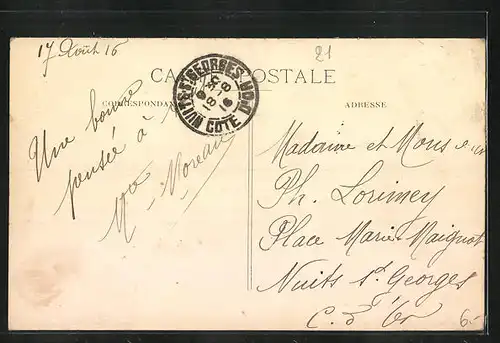 17 Août 16
21
CARTE POSTALE
CORRESPONDANCE
ADRESSE
NUITS-ST-GEORGES
COTE D'OR
Une bonne
pensée à
Mme Moreau
Madame et Mons
Ph. Lorimey
Place Marie Maignot
Nuits St Georges
C. d'Or
6.-